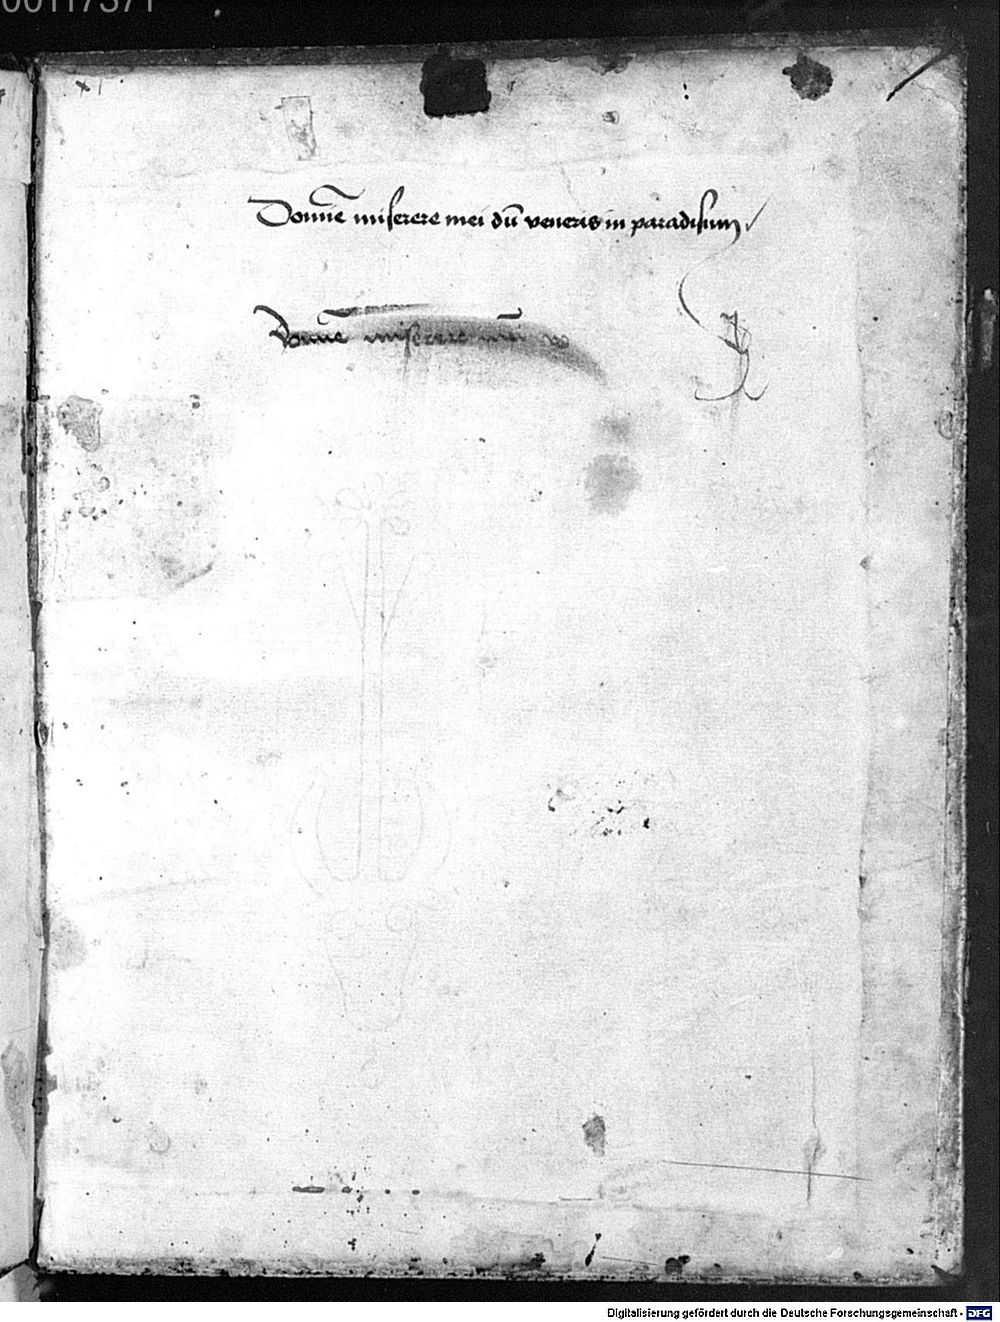 00117371
Domīe miserere mei dū veneris in paradisum
Domīe miserere mei
Digitalisierung gefördert durch die Deutsche Forschungsgemeinschaft - DFG